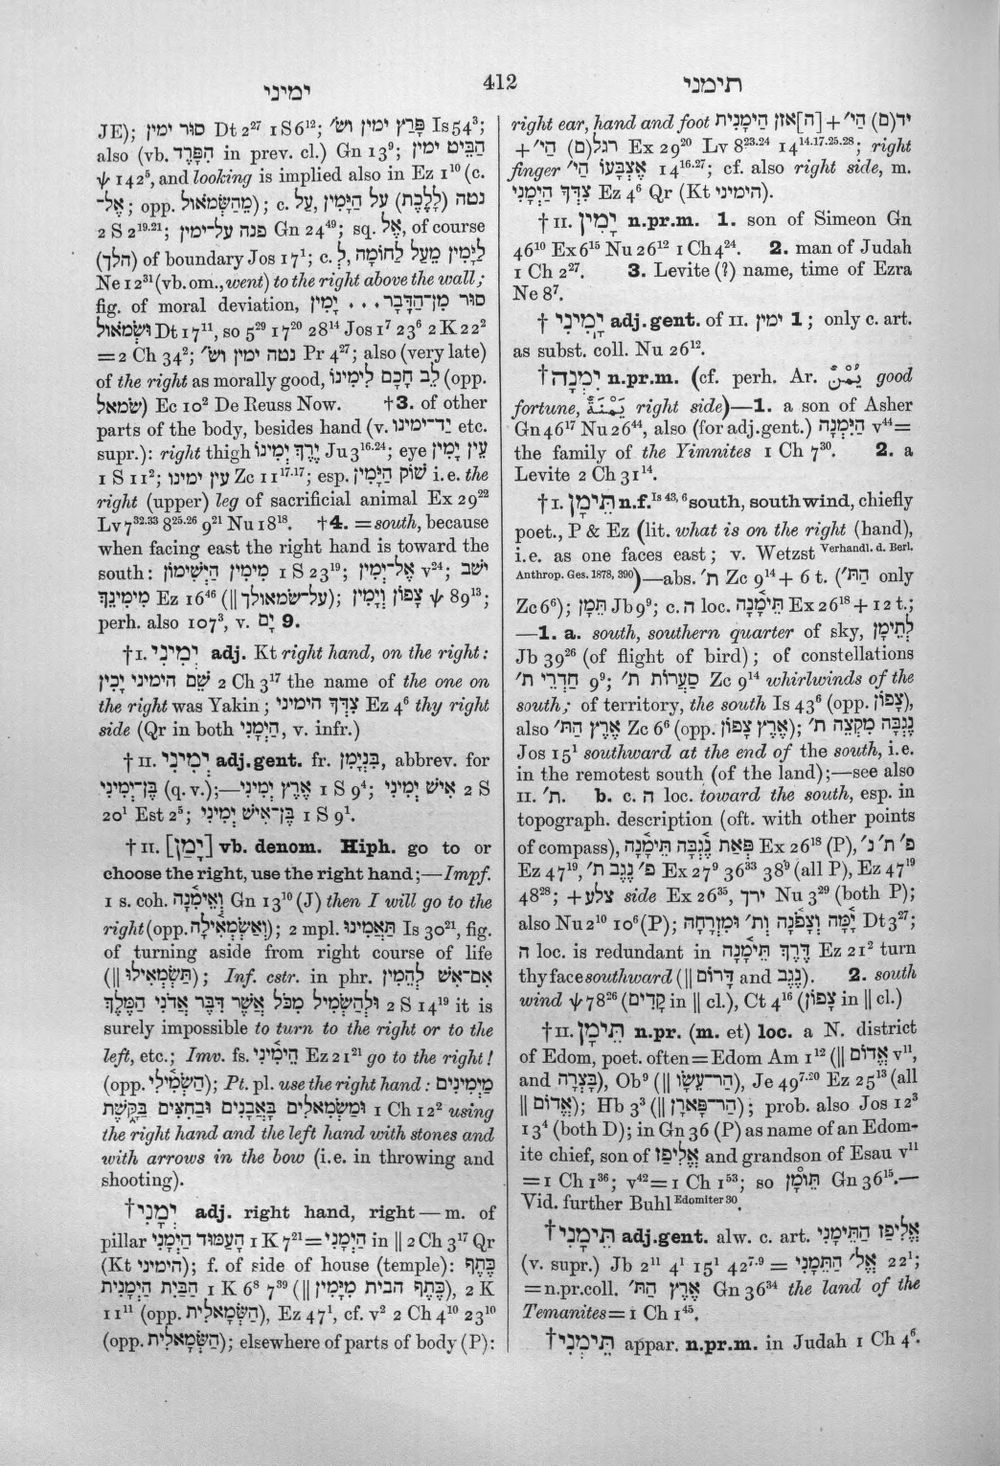 ימיני
412
תימני
JE); סוּר ימין Dt 2²⁷ 1 S 6¹²; פָּרַץ ימין וש׳ Is 54³;
also (vb. הִפָּרֶד in prev. cl.) Gn 13⁹; הַבֵּיט ימין
ψ 142⁵, and looking is implied also in Ez 1¹⁰ (c.
אֶל־; opp. מֵהַשְּׂמֹאול); c. עַל, נטה (לָלֶכֶת) על הַיָּמִין
2 S 2¹⁹·²¹; פנה על־ימין Gn 24⁴⁹; sq. אֶל, of course
(הלך) of boundary Jos 17¹; c. לְ, לַיָּמִין מֵעַל לַחוֹמָה
Ne 12³¹ (vb. om., went) to the right above the wall;
fig. of moral deviation, סוּר מִן־הַדָּבָר . . . יָמִין
וּשְׂמֹאול Dt 17¹¹, so 5²⁹ 17²⁰ 28¹⁴ Jos 1⁷ 23⁶ 2 K 22²
= 2 Ch 34²; נטה ימין וש׳ Pr 4²⁷; also (very late)
of the right as morally good, לֵב חָכָם לִימִינוֹ (opp.
שׂמאל) Ec 10² De Reuss Now. †3. of other
parts of the body, besides hand (v. יַד־ימינו etc.
supr.): right thigh יֶרֶךְ יְמִינוֹ Ju 3¹⁶·²⁴; eye עֵין יָמִין
1 S 11²; עין ימינו Zc 11¹⁷·¹⁷; esp. שׁוֹק הַיָּמִין i.e. the
right (upper) leg of sacrificial animal Ex 29²²
Lv 7³²·³³ 8²⁵·²⁶ 9²¹ Nu 18¹⁸. †4. = south, because
when facing east the right hand is toward the
south: מִימִין הַיְשִׁימוֹן 1 S 23¹⁹; אֶל־יְמִין v²⁴; ישׁב
מִימִינֵךְ Ez 16⁴⁶ (‖ על־שׂמאולך); צָפוֹן וְיָמִין ψ 89¹³;
perh. also 107³, v. יָם 9.
†I. יְמִינִי adj. Kt right hand, on the right:
שֵׁם הימיני יָכִין 2 Ch 3¹⁷ the name of the one on
the right was Yakin; צִדְּךָ הימיני Ez 4⁶ thy right
side (Qr in both הַיְמָנִי, v. infr.)
†II. יְמִינִי adj.gent. fr. בִּנְיָמִן, abbrev. for
בֶּן־יְמִינִי (q. v.);—אֶרֶץ יְמִינִי 1 S 9⁴; אִישׁ יְמִינִי 2 S
20¹ Est 2⁵; בֶּן־אִישׁ יְמִינִי 1 S 9¹.
†II. [יָמַן] vb. denom. Hiph. go to or
choose the right, use the right hand;—Impf.
1 s. coh. וְאֵימִנָה Gn 13¹⁰ (J) then I will go to the
right (opp. וְאַשְׂמְאִילָה); 2 mpl. תַּאֲמִינוּ Is 30²¹, fig.
of turning aside from right course of life
(‖ תַּשְׂמְאִילוּ); Inf. cstr. in phr. אִם־אִשׁ לְהֵמִין
וּלְהַשְׂמִיל מִכֹּל אֲשֶׁר דִּבֶּר אֲדֹנִי הַמֶּלֶךְ 2 S 14¹⁹ it is
surely impossible to turn to the right or to the
left, etc.; Imv. fs. הֵימִנִי Ez 21²¹ go to the right!
(opp. הַשְׂמִילִי); Pt. pl. use the right hand: מַיְמִינִים
וּמַשְׂמִאלִים בָּאֲבָנִים וּבַחִצִּים בַּקֶּשֶׁת 1 Ch 12² using
the right hand and the left hand with stones and
with arrows in the bow (i.e. in throwing and
shooting).
†יְמָנִי adj. right hand, right — m. of
pillar הָעַמּוּד הַיְמָנִי 1 K 7²¹ = הַיְמָנִי in ‖ 2 Ch 3¹⁷ Qr
(Kt הימיני); f. of side of house (temple): כֶּתֶף
הַבַּיִת הַיְמָנִית 1 K 6⁸ 7³⁹ (‖ כֶּתֶף הבית מִיָּמִין), 2 K
11¹¹ (opp. הַשְּׂמָאלִית), Ez 47¹, cf. v² 2 Ch 4¹⁰ 23¹⁰
(opp. הַשְּׂמָאלִית); elsewhere of parts of body (P):
right ear, hand and foot יד(ם) הי׳ + [ה]אזן הַיְמָנִית
+ רגל(ם) הי׳ Ex 29²⁰ Lv 8²³·²⁴ 14¹⁴·¹⁷·²⁵·²⁸; right
finger אֶצְבָּעוֹ הי׳ 14¹⁶·²⁷; cf. also right side, m.
צִדְּךָ הַיְמָנִי Ez 4⁶ Qr (Kt הימיני).
†II. יָמִין n.pr.m. 1. son of Simeon Gn
46¹⁰ Ex 6¹⁵ Nu 26¹² 1 Ch 4²⁴. 2. man of Judah
1 Ch 2²⁷. 3. Levite (?) name, time of Ezra
Ne 8⁷.
†יְמִינִי adj.gent. of II. ימין 1; only c. art.
as subst. coll. Nu 26¹².
†יִמְנָה n.pr.m. (cf. perh. Ar. يُمْنٌ good
fortune, يَمْنَةٌ right side)—1. a son of Asher
Gn 46¹⁷ Nu 26⁴⁴, also (for adj.gent.) הַיִּמְנָה v⁴⁴ =
the family of the Yimnites 1 Ch 7³⁰. 2. a
Levite 2 Ch 31¹⁴.
†I. תֵּימָן n.f. Is 43, 6 south, south wind, chiefly
poet., P & Ez (lit. what is on the right (hand),
i.e. as one faces east; v. Wetzst Verhandl. d. Berl.
Anthrop. Ges. 1878, 390)—abs. ת׳ Zc 9¹⁴ + 6 t. (הַתּ׳ only
Zc 6⁶); תֵּמָן Jb 9⁹; c. ה loc. תֵּימָנָה Ex 26¹⁸ + 12 t.;
—1. a. south, southern quarter of sky, לְתֵימָן
Jb 39²⁶ (of flight of bird); of constellations
חַדְרֵי ת׳ 9⁹; סַעֲרוֹת ת׳ Zc 9¹⁴ whirlwinds of the
south; of territory, the south Is 43⁶ (opp. צָפוֹן),
also אֶרֶץ הַתּ׳ Zc 6⁶ (opp. אֶרֶץ צָפוֹן); נֶגְבָּה מִקְצֵה ת׳
Jos 15¹ southward at the end of the south, i.e.
in the remotest south (of the land);—see also
II. ת׳. b. c. ה loc. toward the south, esp. in
topograph. description (oft. with other points
of compass), פְּאַת נֶגְבָּה תֵּימָנָה Ex 26¹⁸ (P), פ׳ ת׳ נ׳
Ez 47¹⁹, פ׳ נֶגֶב ת׳ Ex 27⁹ 36²³ 38⁹ (all P), Ez 47¹⁹
48²⁸; + צלע side Ex 26³⁵, ירך Nu 3²⁹ (both P);
also Nu 2¹⁰ 10⁶ (P); יָמָּה וְצָפֹנָה וְת׳ וּמִזְרָחָה Dt 3²⁷;
ה loc. is redundant in דֶּרֶךְ תֵּימָנָה Ez 21² turn
thy face southward (‖ דָּרוֹם and נֶגֶב). 2. south
wind ψ 78²⁶ (קָדִים in ‖ cl.), Ct 4¹⁶ (צָפוֹן in ‖ cl.)
†II. תֵּימָן n.pr. (m. et) loc. a N. district
of Edom, poet. often = Edom Am 1¹² (‖ אֱדוֹם v¹¹,
and בָּצְרָה), Ob⁹ (‖ הַר־עֵשָׂו), Je 49⁷·²⁰ Ez 25¹³ (all
‖ אֱדוֹם); Hb 3³ (‖ הַר־פָּארָן); prob. also Jos 12³
13⁴ (both D); in Gn 36 (P) as name of an Edom-
ite chief, son of אֱלִיפַז and grandson of Esau v¹¹
= 1 Ch 1³⁶; v⁴² = 1 Ch 1⁵³; so תֵּימָן Gn 36¹⁵.—
Vid. further Buhl Edomiter 30.
†תֵּימָנִי adj.gent. alw. c. art. אֱלִיפַז הַתֵּימָנִי
(v. supr.) Jb 2¹¹ 4¹ 15¹ 42⁷·⁹ = אֱל׳ הַתֵּמָנִי 22¹;
= n.pr.coll. אֶרֶץ הַתּ׳ Gn 36³⁴ the land of the
Temanites = 1 Ch 1⁴⁵.
†תֵּימְנִי appar. n.pr.m. in Judah 1 Ch 4⁶.